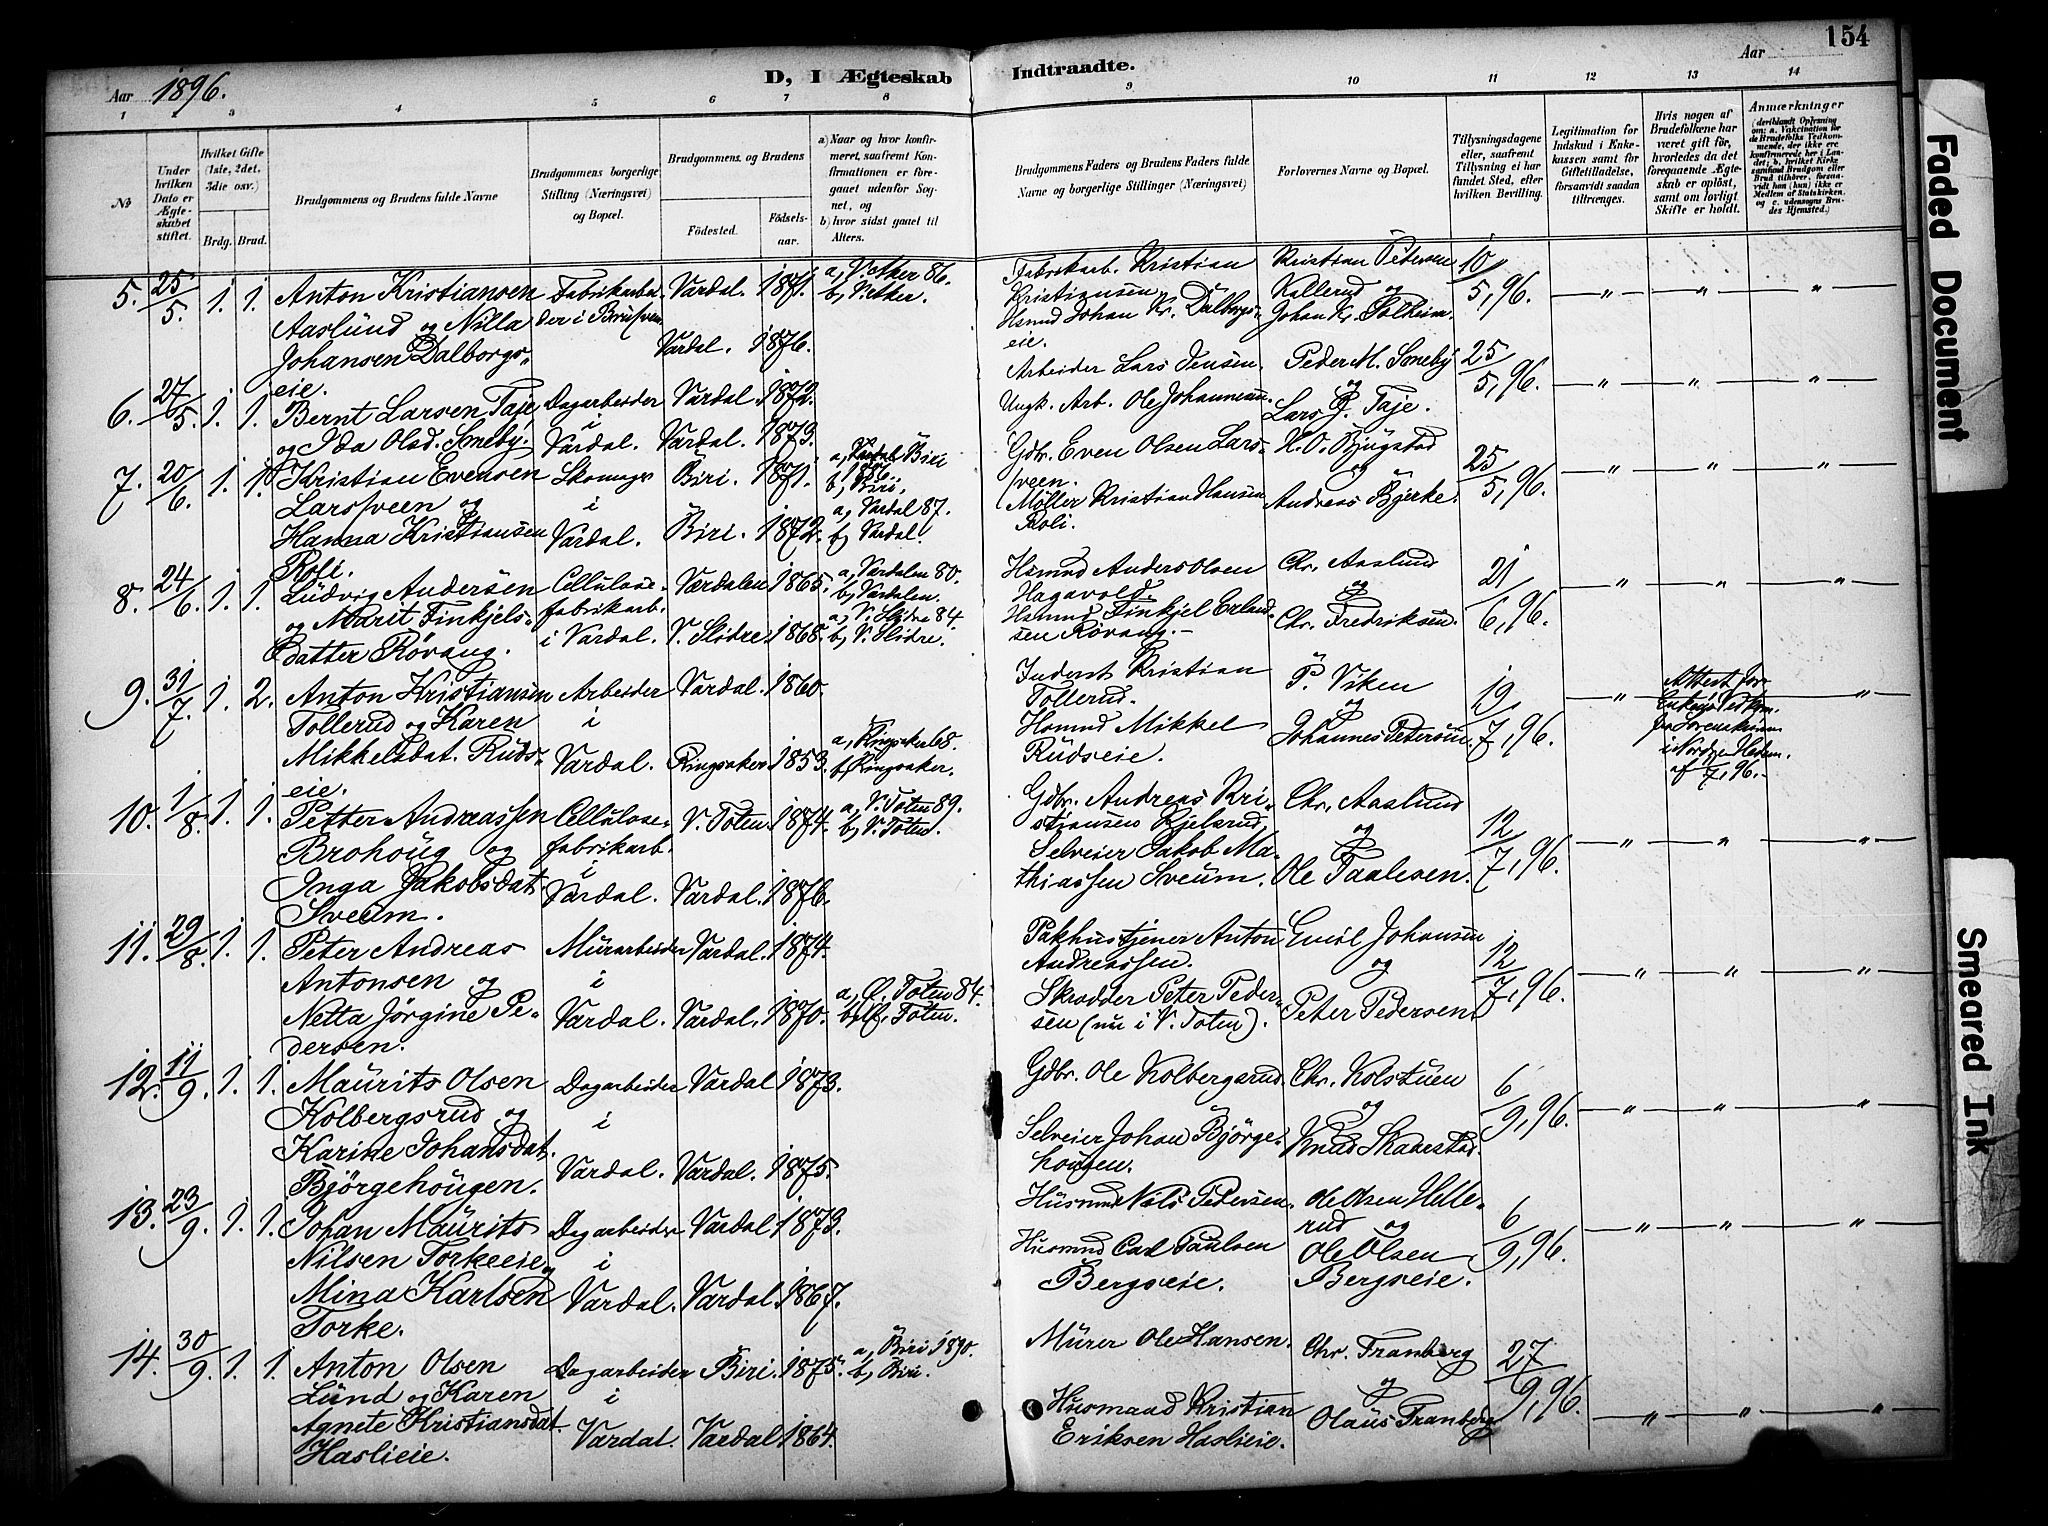 154
Aar 1896.
D, I Ægteskab Indtraadte.
Aar
1 2 3 4 5 6 7 8 9 10 11 12 13 14
No
Under hvilken Dato er Ægteskabet stiftet.
Hvilket Gifte (1ste, 2det, 3die osv.)
Brdg. Brud.
Brudgommens og Brudens fulde Navne
Brudgommens borgerlige Stilling (Næringsvei) og Bopæl.
Brudgommens og Brudens
Födested. Födselsaar.
a) Naar og hvor konfirmeret, saafremt Konfirmationen er foregaaet udenfor Sognet, og
b) hvor sidst gaaet til Alters.
Brudgommens Faders og Brudens Faders fulde Navne og borgerlige Stillinger (Næringsvei)
Forlovernes Navne og Bopæl.
Tillysningsdagene eller, saafremt Tillysning ei har fundet Sted, efter hvilken Bevilling.
Legitimation for Indskud i Enkekassen samt for Giftetilladelse, forsaavidt saadan tiltrænges.
Hvis nogen af Brudefolkene har været gift før, hvorledes da det foregaaende Ægteskab er opløst, samt om lovligt Skifte er holdt.
Anmærkninger (deriblandt Oplysning om: a. Vakcination for de Brudefolks Vedkommende, der ikke ere konfirmerede her i Landet; b. hvilket Kirkesamfund Brudgom eller Brud tilhører, forsaavidt han (hun) ikke er Medlem af Statskirken, og c. udensogns Brudes Hjemsted.)
5. 25/5. 1. 1. Anton Kristiansen
Aaslund og Nilla
Johansen Dalborgs-
eie.
Fabrikarbei-
der i
Vardal. 1871.
Vardal. 1876.
a, V. Aker 86.
b, V. Aker.
Fabrikarb. Kristian
Kristiansen
Hsmnd Johan Kr. Dalborgs-
eie.
Kristian Petersen
Kallerud og
Johan Kr. Solheim.
10/5, 96. " " "
6. 27/5. 1. 1. Bernt Larsen Taje
og Ida Olsd. Smeby.
Dagarbeider
i
Vardal.
Vardal. 1872.
Vardal. 1873.
Arbeider Lars Jensen.
Ungk. Arb. Ole Johannesen
Peder M. Smeby
og
Lars J. Taje.
25/5, 96. " " "
7. 20/6. 1. 1. Kristian Evensen
Larssveen og
Hanna Kristiansen
Roli.
Skomager
i
Vardal.
Biri. 1871.
Biri. 1872.
a, Biri
b, Biri.
a, Vardal 87.
b, Vardal.
Gdbr. Even Olsen Lars-
sveen.
Møller Kristian Hansen
Roli.
H. O. Bjugstad
og
Andreas Bjerke.
25/5, 96. " " "
8. 24/6. 1. 1. Ludvig Andersen
og Marit Finkjels-
datter Røvang.
Cellulose-
fabrikarb.
i Vardal.
Værdalen 1865.
V. Slidre. 1868.
a, Værdalen 80.
b, Værdalen.
a, V. Slidre 84.
b, V. Slidre.
Hsmnd Anders Olsen
Hagavold.
Hsmnd Finkjel Erland-
sen Røvang.
Chr. Aaslund
og
Chr. Fredriksen.
21/6, 96. " " "
9. 31/7. 1. 2. Anton Kristiansen
Tollerud og Karen
Mikkelsdat. Ruds-
eie.
Arbeider
i
Vardal.
Vardal. 1860.
Ringsaker 1853.
a, Ringsaker 68.
b, Ringsaker.
Inderst Kristian
Tollerud.
Hsmnd Mikkel
Rudseie.
P. Viken
og
Johannes Petersen.
19/7, 96. "
Attest for
Enkens Vedkom.
fra Sorenskriveren
i Nordre Hedem.
af 7, 96.
"
10. 1/8. 1. 1. Petter Andreassen
Brohoug og
Inga Jakobsdat.
Sveum.
Cellulose-
fabrikarb.
i
Vardal.
V. Toten. 1874.
Vardal. 1876.
a, V. Toten 89.
b, V. Toten.
Gdbr. Andreas Kri-
stiansen Kjelsrud,
Selveier Jakob Ma-
thiassen Sveum.
Chr. Aaslund
og
Ole Paulesen.
12/7, 96. " " "
11. 29/8. 1. 1. Peter Andreas
Antonsen og
Netta Jørgine Pe-
dersen.
Murarbeider
i
Vardal.
Vardal. 1874.
Vardal. 1870.
a, Ø. Toten 84.
b, V. Toten.
Pakhustjener Anton
Andreassen.
Skrædder Peter Peder-
sen (nu i V. Toten).
Emil Johansen
og
Peter Pedersen
12/7, 96. " " "
12. 11/9. 1. 1. Maurits Olsen
Kolbergsrud og
Karine Johansdat.
Bjørgehougen.
Dagarbeider
i
Vardal.
Vardal 1873.
Vardal. 1875.
Gdbr. Ole Kolbergsrud.
Selveier Johan Bjørge-
hougen.
Chr. Kolstuen
og
Knud Skadestad.
6/9, 96. " " "
13. 23/9. 1. 1. Johan Maurits
Nilsen Torkeeie og
Mina Karlsen
Torke.
Dagarbeider
i
Vardal.
Vardal 1873.
Vardal. 1867.
Husmnd Nils Pedersen.
Husmnd Carl Paulsen
Bergseie.
Ole Olsen Hille-
rud og
Ole Olsen
Bergseie.
6/9, 96. " " "
14. 30/9. 1. 1. Anton Olsen
Lund og Karen
Agnete Kristiansdat.
Haslieie.
Dagarbeider
i
Vardal.
Biri. 1875.
Vardal. 1864.
a, Biri 1890.
b, Biri.
Murer Ole Hansen.
Husmand Kristian
Eriksen Haslieie.
Chr. Franberg
og
Olaus Franberg
27/9, 96. " " "
Faded Document
Smeared Ink